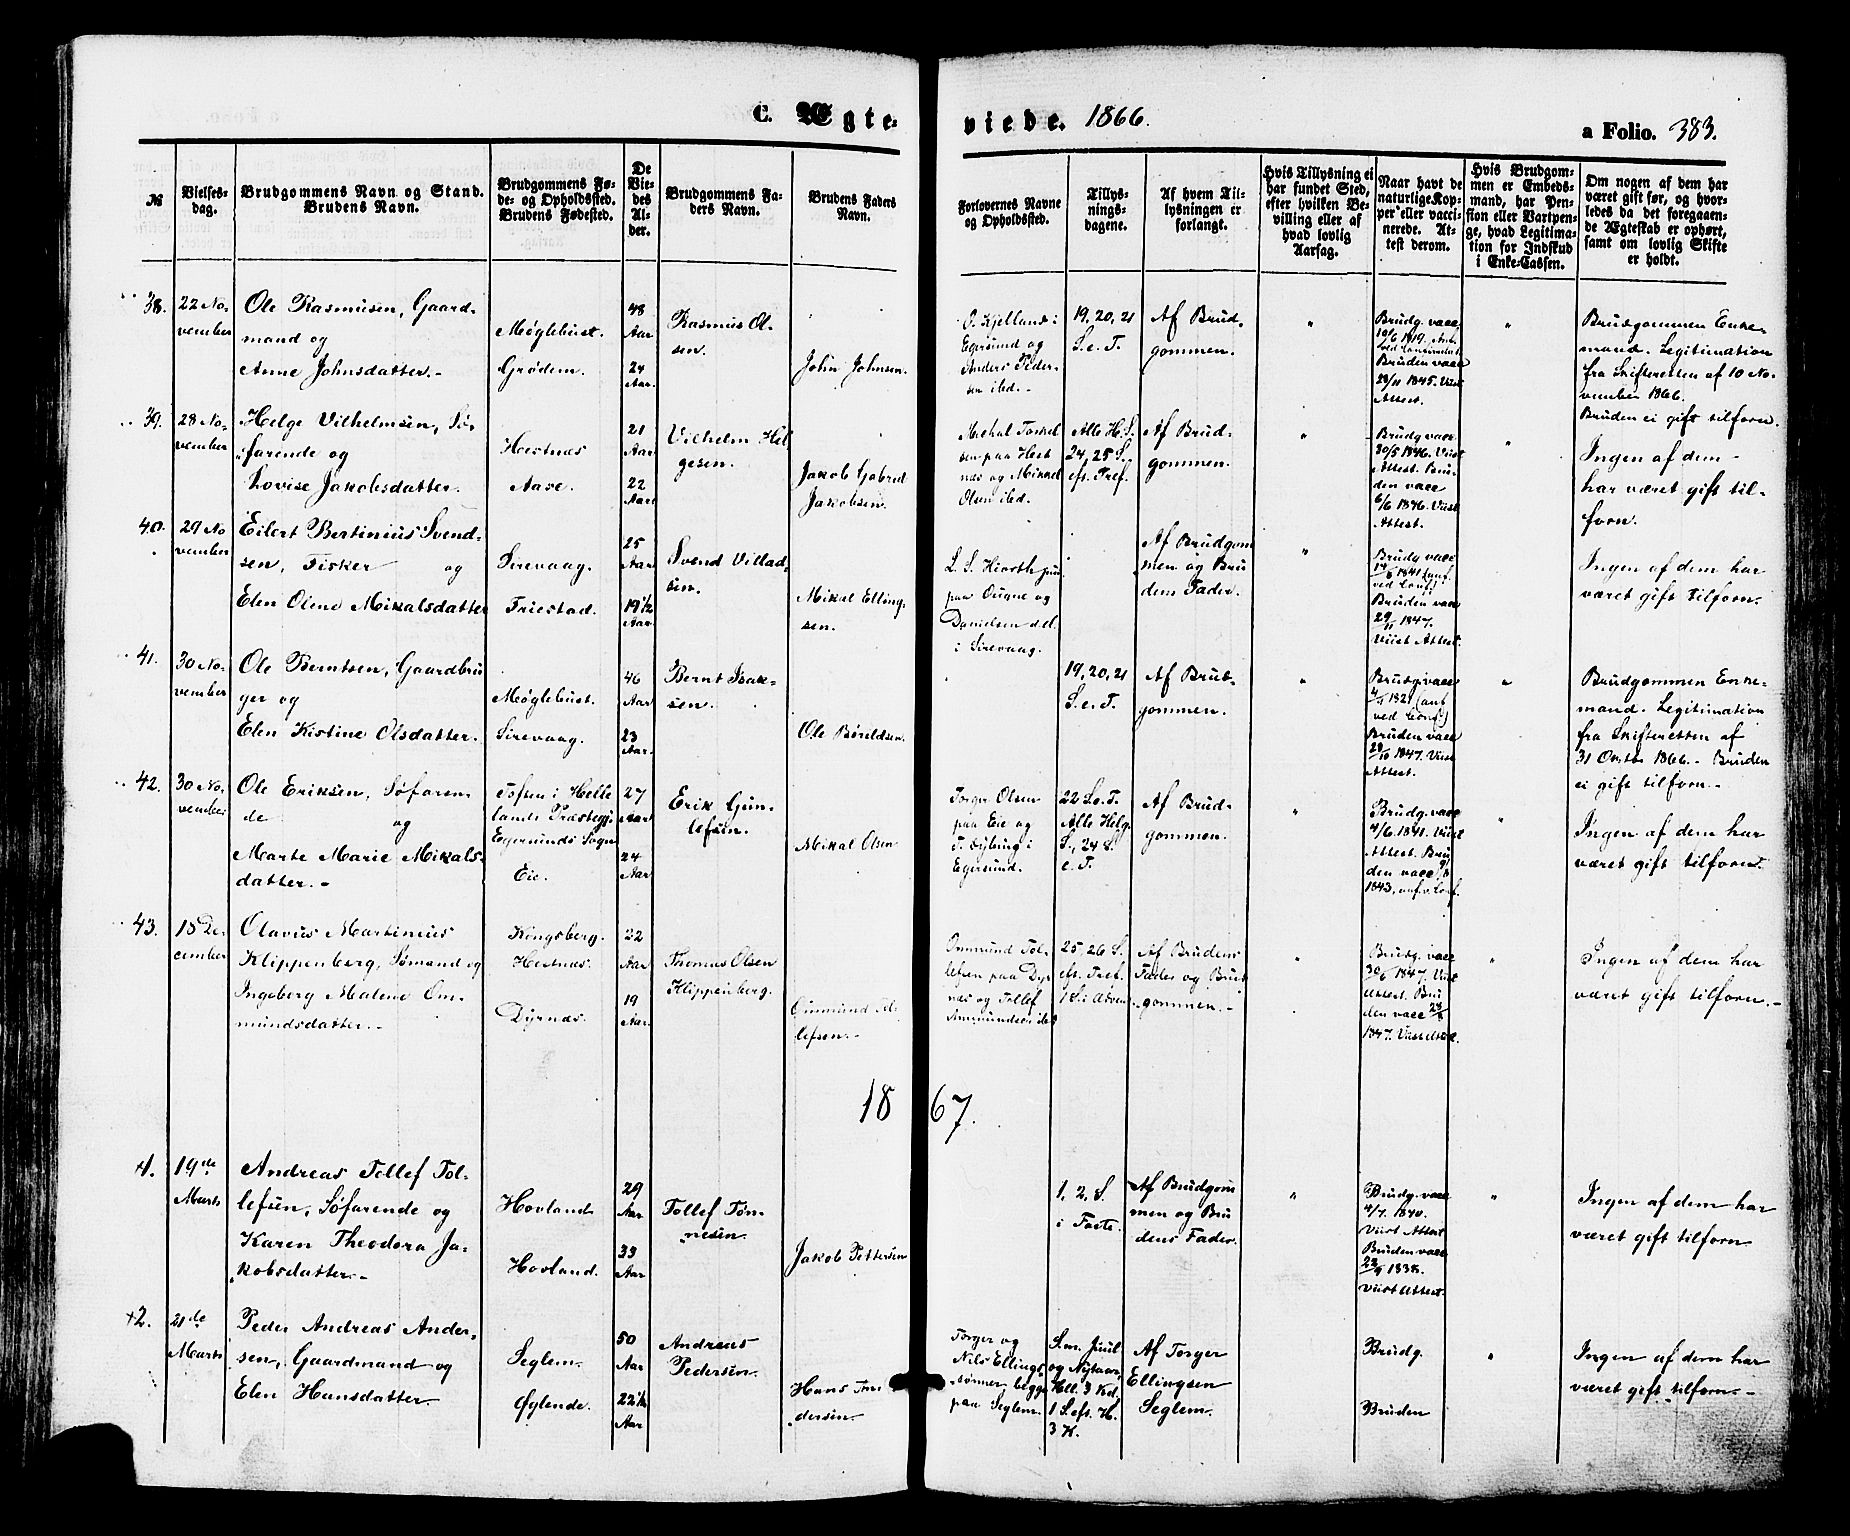 C. Ægte- viede. 1866.
a Folio. 383.
№
Vielses-
dag.
Brudgommens Navn og Stand.
Brudens Navn.
Brudgommens Fø-
de- og Opholdssted.
Brudens Fødested.
De
Vie-
des
Al-
der.
Brudgommens Fa-
ders Navn.
Brudens Faders
Navn.
Forlovernes Navne
og Opholdssted.
Tillys-
nings-
dagene.
Af hvem Til-
lysningen er
forlangt.
Hvis Tillysning ei
har fundet Sted,
efter hvilken Be-
villing eller af
hvad lovlig
Aarsag.
Naar havt de
naturlige Kop-
per eller vacci-
nerede. At-
test derom.
Hvis Brudgom-
men er Embeds-
mand, har Pen-
sion eller Vartpen-
ge, hvad Legitima-
tion for Indskud
i Enke-Cassen.
Om nogen af dem har
været gift før, og hvor-
ledes da det foregaaen-
de Ægteskab er ophørt,
samt om lovlig Skifte
er holdt.
38.
22 No-
vember
Ole Rasmusen, Gaard-
mand og
Anne Johnsdatter.-
Møglebust.
Grødem.
48
Aar
24
Aar.
Rasmus Ol-
sen.
John Johnsen.
O. Kjelland i
Egersund og
Anders Peder-
sen ibd.
19, 20, 21
S. e. T.
Af Brud-
gommen.
"
Brudg. vacc.
10/6 1819.
Bruden vacc
1845. Viist
Attest.
"
Brudgommen Enke-
mand. Legitimation
fra Skifteretten af 10 No-
vember 1866.
Bruden ei gift tilforn.
39.
28 No-
vember
Helge Vilhelmsen, Sø-
farende og
Lovise Jakobsdatter.
Hestnæs
Aase.
21
Aar
22
Aar
Vilhelm Hel-
gesen.
Jakob Gabriel
Jakobsen.
Michal Torkel
sen paa Hest
næs og Mikkel
Olsen ibd.
Alle H. S.
24, 25 S.
eft. Tref.
Af Brud-
gommen.
"
Brudg vacc.
30/5 1846. Viist
Attest. Bru-
den vacc
6/6 1846. Viist
Attest.
"
Ingen af dem -
har været gift til-
forn.
40.
29 No
vember
Eilert Bertinius Svend-
sen, Fisker og
Elen Olene Mikalsdatter
Sirevaag.
Friestad.
25
Aar
19 1/2
Aar.
Svend Villad-
sen.
Mikal Elling-
sen.
L. S. Hiorth jun.
paa Ougne og
Danielsen
i Sirevaag.
Af Brudgom
men og Bru
dens Fader.
"
Brudg vacc
1841
Bruden vacc
29/11 1847.
Viist Attest.
Ingen af dem har
været gift tilforn.
41.
30 No-
vember
Ole Berntsen, Gaardbru-
ger og
Elen Kistine Olsdatter.
Møglebust.
Sirevaag.
46
Aar
23
Aar.
Bernt Isak-
sen.
Ole Børildsen.
19, 20, 21
S. e. T.
Af Brud-
gommen.
"
Brudg vacc
1821 (anf
ved Conf.)
Bruden vacc
1847. Viist
Attest.
"
Brudgommen Enke-
mand. Legitimation
fra Skifteretten af
31 Octbr 1866.- Bruden
ei gift tilforn.-
42.
30 No-
vember
Ole Eriksen, Søfaren-
de og
Marte Marie Mikals-
datter.-
Tofsen i Helle
lands Præstegj.
Egersunds Sogn
Eie.
27
Aar
24
Aar
Erik Gun-
lefsen.
Mikal Olsen
Torger Olsen
paa Eie og
T. Sybing i
Egersund.
22 S. e. T.
Alle Helg.
S., 24 S.
e. T.
Af Brud-
gommen.
"
Brudg. vacc
4/6. 1841. Viist
Attest. Bru
den vacc
1843, anf. v Conf.
"
Ingen af dem har
været gift tilforn.
43.
15 De-
cember
Olavus Martinius
Klippenberg, Sømand og
Ingeborg Malene Om-
mundsdatter.-
Kingsberg.
Hestnæs.
Dyrnæs.
22
Aar
19
Aar.
Thomas Olsen
Klippenberg.
Ommund Tol-
lefsen.-
Ommund Tol-
lefsen paa Dyr
næs og Tollef
Ammundsen ibd
25, 26 S.
eft. Tref.
1 S. i Adven.
Af Brudens
Fader og Brud
gommen.-
"
Brudg. vacc
30/6 1847. Viist
Attest. Bru
den vacc
1847. Viist Attest.
"
Ingen af dem har
været gift tilforn.-
18 67.
+1.
19de
Marts
Andreas Tollef Tol-
lefsen, Søfarende og
Karen Theodora Ja-
kobsdatter.-
Hovland
Hovland.
29
Aar
33
Aar
Tollef Tøn-
nesen.
Jakob Pettersen
1, 2, S.
i Faste.
Af Brudgom
men og Bru
dens Fader.
"
Brudg. vacc
4/7. 1840.
Viist Attest
Bruden vacc
1838.
Viist Attest.
"
Ingen af dem har
været gift tilforn
+2.
21de
Marts
Peder Andreas Ander-
sen, Gaardmand og
Elen Hansdatter
Seglem.
Øglende.
50
Aar
22 1/2
Aar
Andreas
Pedersen.
Hans
dersen.
Torger og
Nils Ellings
sønner begge
paa Seglem.
S. m. Juul
og Nytaar,
Hell. 3 Kd.
1 S. eft. H.
3 K.
Af Torger
Ellingsen
Seglem.
Brudg.
Bruden
"
Ingen af dem har
været gift tilforn.-